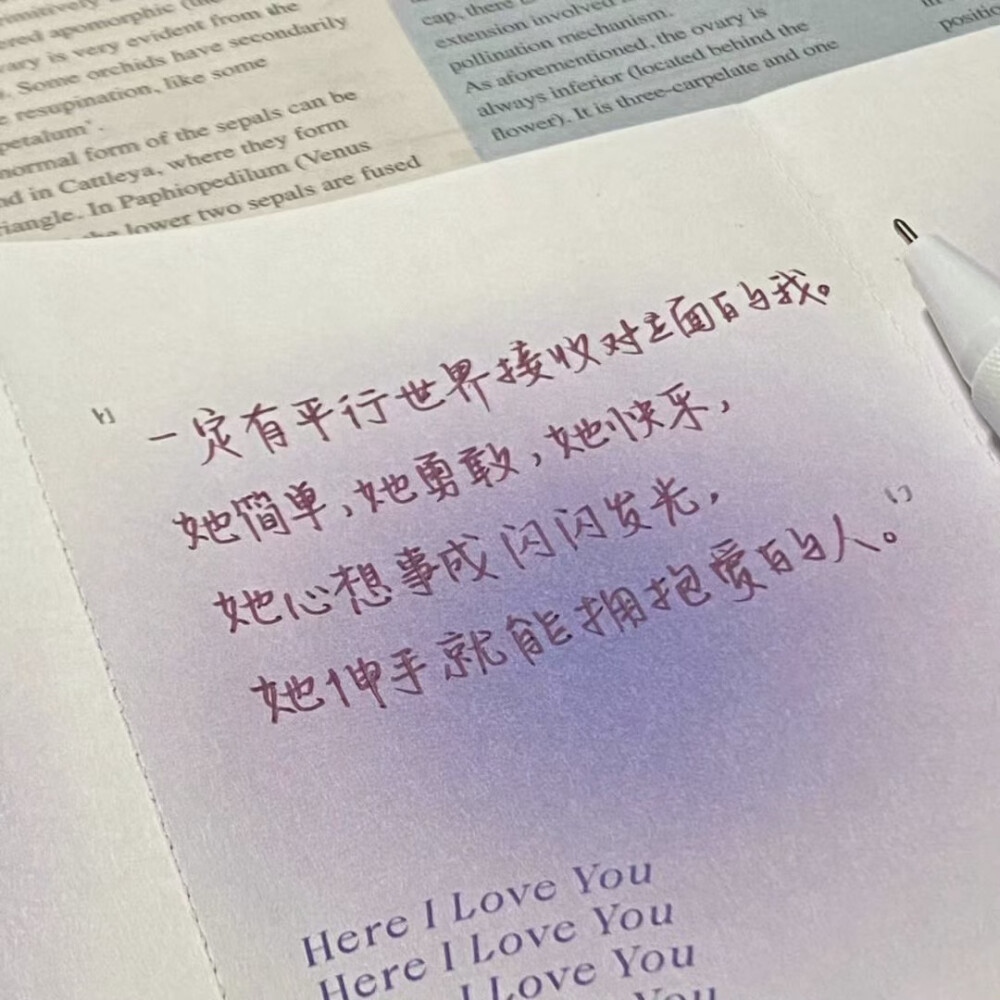 primitively
ered apomorphic (the
ary is very evident from the
. Some orchids have secondarily
e resupination, like some
petalum'.
normal form of the sepals can be
nd in Cattleya, where they form
riangle. In Paphiopedilum (Venus
the lower two sepals are fused
cap, there
extension involved
pollination mechanism.
As aforementioned, the ovary is
always inferior (located behind the
flower). It is three-carpelate and one
positio
“一定有平行世界接收对立面的我。
她简单,她勇敢,她快乐,
她心想事成闪闪发光,
她伸手就能拥抱爱的人。”
Here I Love You
Here I Love You
I Love You
You